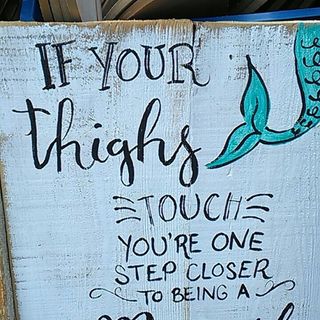 IF YOUR
thighs
TOUCH
YOU'RE ONE
STEP CLOSER
TO BEING A